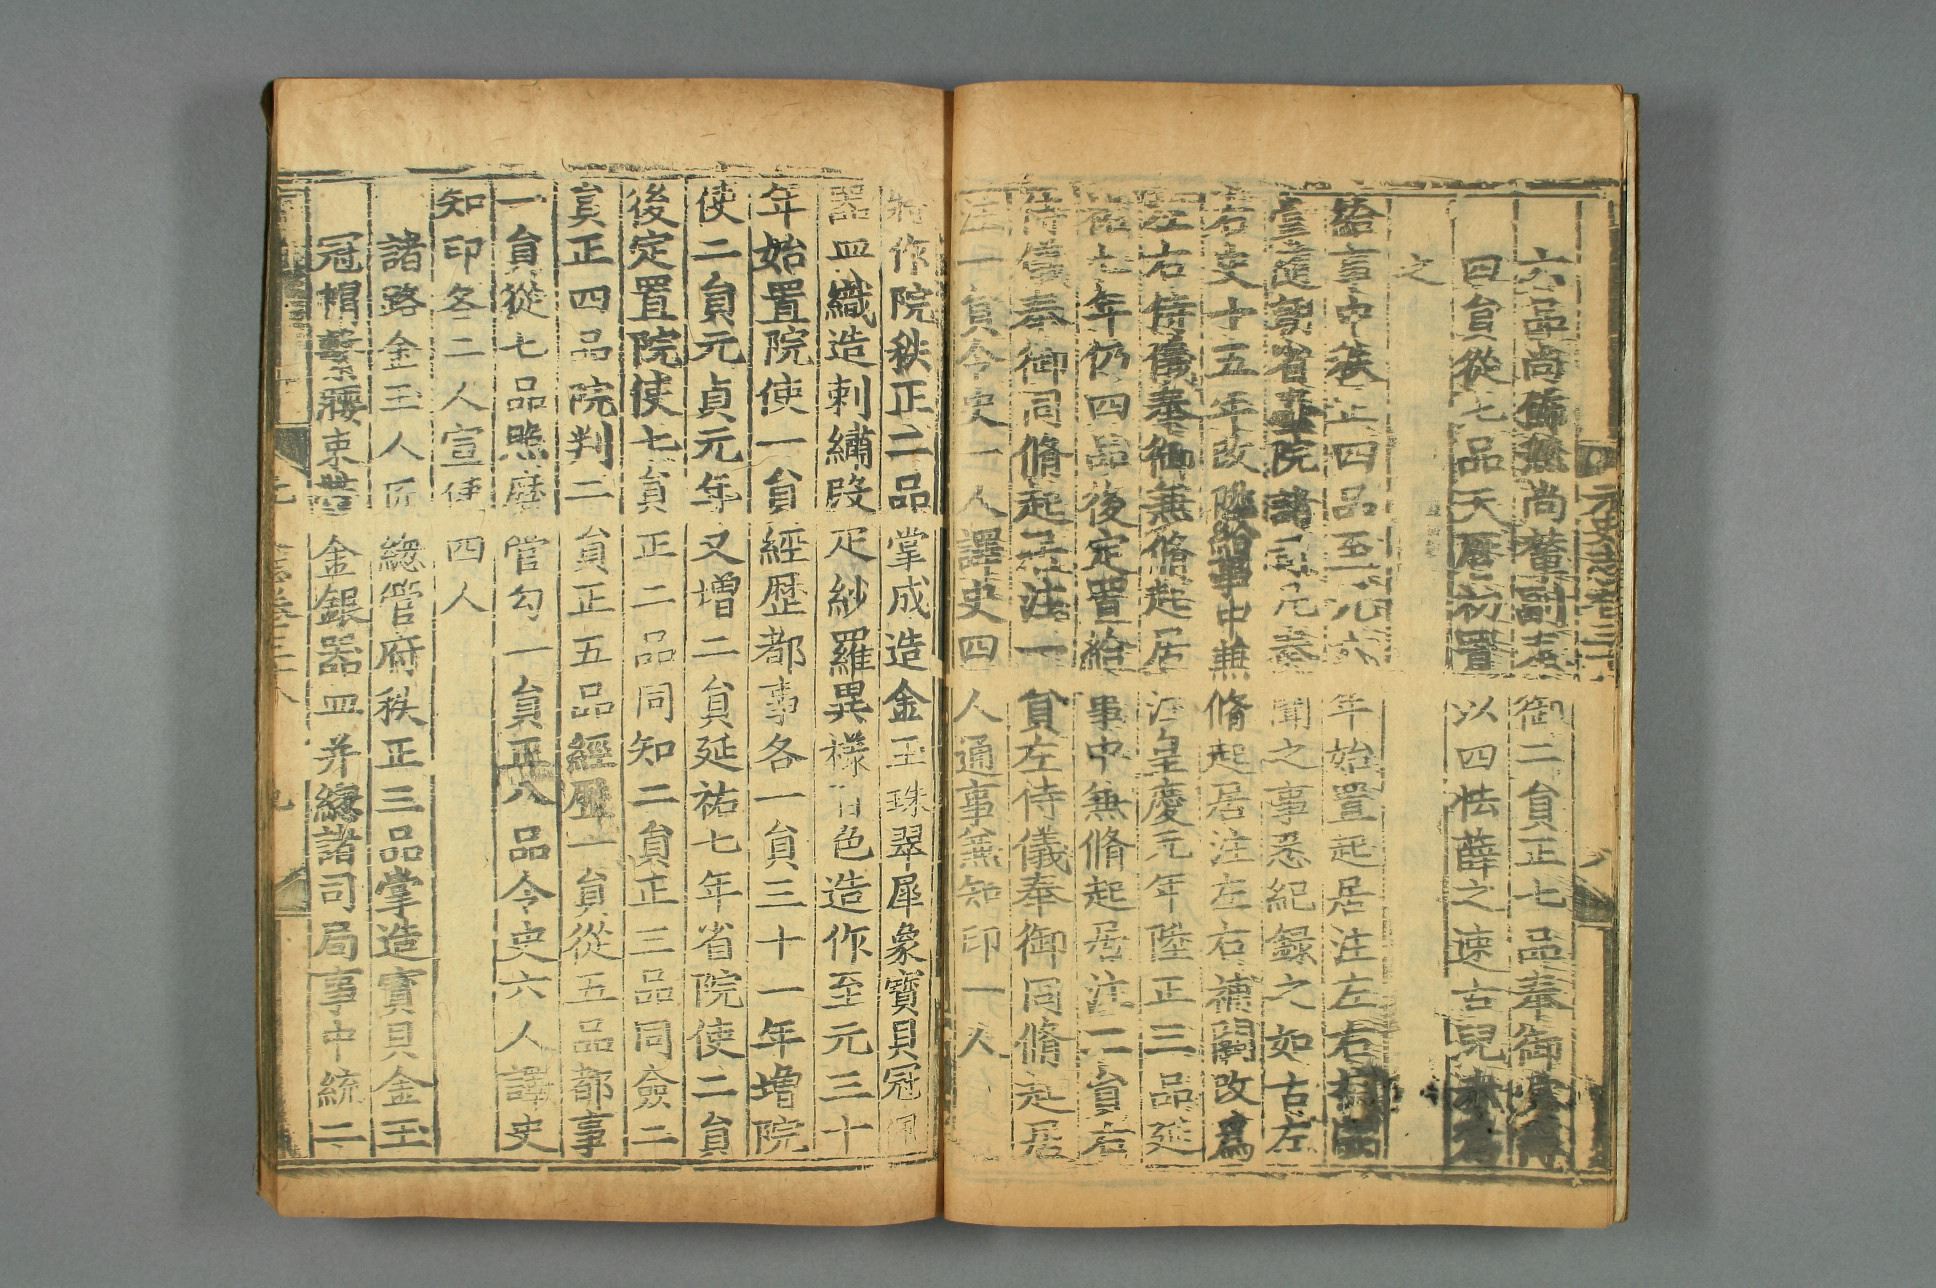 元史志卷三十八
六品尚飾兼尚輦副奉御二員正七品奉御
四員從七品天曆初置以四怯薛之速古兒赤爲
之
給事中秩正四品至元六年始置起居注左右補闕
掌隨朝省臺院諸司凡奏聞之事悉紀錄之如古左
右史十五年改陞給事中兼脩起居注左右補闕改爲
左右侍儀奉御兼脩起居注皇慶元年陞正三品延
祐七年仍四品後定置給事中兼脩起居注二員右
侍儀奉御同脩起居注一員左侍儀奉御同脩起居
注一員令史一人譯史四人通事兼知印一人
將作院秩正二品掌成造金玉珠翠犀象寶貝冠佩
器皿織造刺繡段疋紗羅異樣百色造作至元三十
年始置院使一員經歷都事各一員三十一年增院
使二員元貞元年又增二員延祐七年省院使二員
後定置院使七員正二品同知二員正三品同僉二
員正四品院判二員正五品經歷一員從五品都事
一員從七品照磨管勾一員正八品令史六人譯史
知印各二人宣使四人
諸路金玉人匠總管府秩正三品掌造寶貝金玉
冠帽繫腰束帶金銀器皿并總諸司局事中統二
元 志卷三十八 九